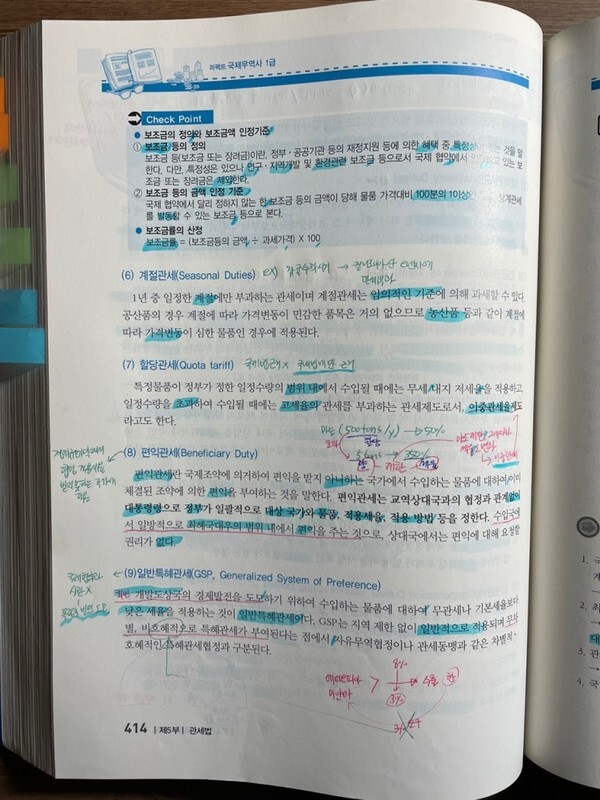 퍼펙트 국제무역사 1급
Check Point
● 보조금의 정의와 보조금액 인정기준
① 보조금 등의 정의
보조금 등(보조금 또는 장려금)이란, 정부·공공기관 등의 재정지원 등에 의한 혜택 중 특정성이 있는 것을 말
한다. 다만, 특정성은 있으나 연구·지역개발 및 환경관련 보조금 등으로서 국제 협약에서 인정하고 있는 보
조금 또는 장려금은 제외한다.
② 보조금 등의 금액 인정 기준
국제 협약에서 달리 정하지 않는 한 보조금 등의 금액이 당해 물품 가격대비 100분의 1이상인 상계관세
를 발동할 수 있는 보조금 등으로 본다.
● 보조금률의 산정
보조금률 = (보조금등의 금액 ÷ 과세가격) X 100
(6) 계절관세(Seasonal Duties) ex)
1년 중 일정한 계절에만 부과하는 관세이며 계절관세는 임의적인 기준에 의해 과세할 수 있다.
공산품의 경우 계절에 따라 가격변동이 민감한 품목은 거의 없으므로 농산품 등과 같이 계절에
따라 가격변동이 심한 물품인 경우에 적용된다.
(7) 할당관세(Quota tariff)
특정물품이 정부가 정한 일정수량의 범위 내에서 수입될 때에는 무세 내지 저세율을 적용하고
일정수량을 초과하여 수입될 때에는 고세율의 관세를 부과하는 관세제도로서, 이중관세율제도
라고도 한다.
(500tons/y) → 50%
501tons → 350%
(8) 편익관세(Beneficiary Duty)
편익관세란 국제조약에 의거하여 편익을 받지 아니하는 국가에서 수입하는 물품에 대하여 이미
체결된 조약에 의한 편익을 부여하는 것을 말한다. 편익관세는 교역상대국과의 협정과 관계없이
대통령령으로 정부가 일괄적으로 대상 국가와 물품, 적용세율, 적용 방법 등을 정한다. 수입국에
서 일방적으로 최혜국대우의 범위 내에서 편익을 주는 것으로, 상대국에서는 편익에 대해 요청할
권리가 없다.
(9)일반특혜관세(GSP, Generalized System of Preference)
개발도상국의 경제발전을 도모하기 위하여 수입하는 물품에 대하여 무관세나 기본세율보다
낮은 세율을 적용하는 것이 일반특혜관세이다. GSP는 지역 제한 없이 일반적으로 적용되며 무차
별, 비호혜적으로 특혜관세가 부여된다는 점에서 자유무역협정이나 관세동맹과 같은 차별적·
호혜적인 특혜관세협정과 구분된다.
8%
수출 한
3%
414 | 제5부 | 관세법